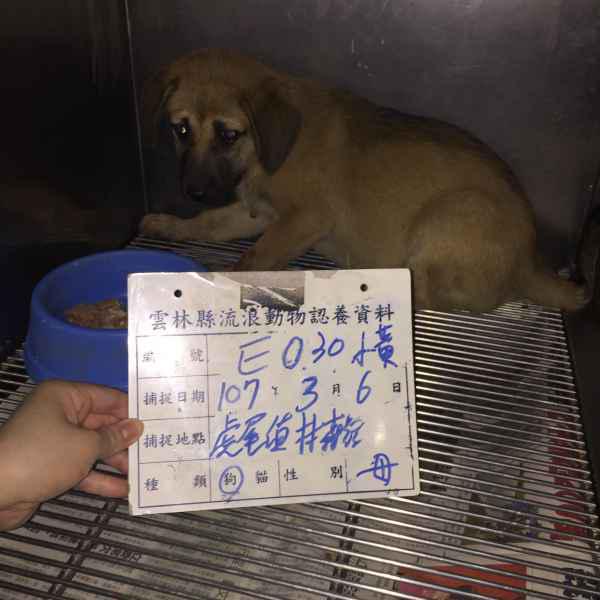 雲林縣流浪動物認養資料
編號 E 0.30 小黃
捕捉日期 107 年 3 月 6 日
捕捉地點 虎尾值
種類 狗 貓 性別 母